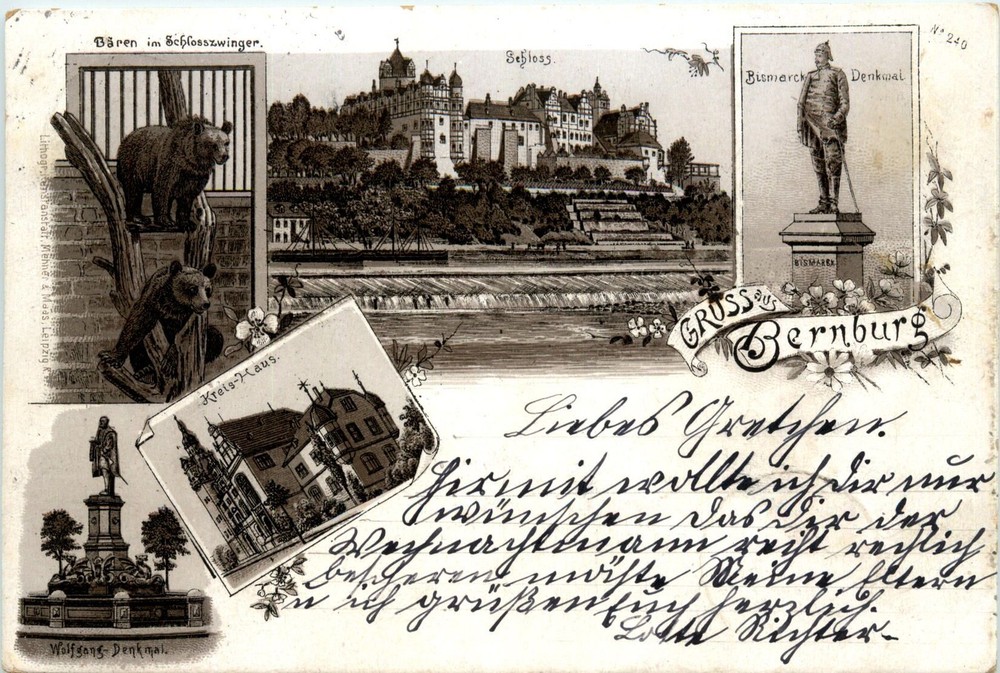 Bären im Schlosszwinger.
Schloss.
Bismarck Denkmal
No 240
BISMARCK
Lithogr. Kunstanstalt Mehner & Maas, Leipzig
GRUSS aus
Bernburg
Kreis-Haus.
Wolfgang-Denkmal.
Liebes Gretchen.
Hirmit wollte ich dir nur
wünschen das dir der
Weihnachtmann recht rechlich
bescheren möchte Meine Eltern
u ich grüßen Euch herzlich.
Lotte Richter-